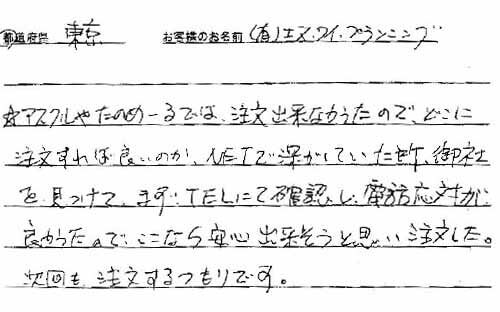 都道府県 東京 お客様のお名前 (有)エヌ.ワイ.プランニング
☆アスクルやたのめーるでは、注文出来なかったので、どこに
注文すれば良いのか、NETで探がしていた所、御社
を見つけて、まず、TELにて確認し、電話応対が
良かったので、ここなら安心出来そうと思い注文した。
次回も注文するつもりです。